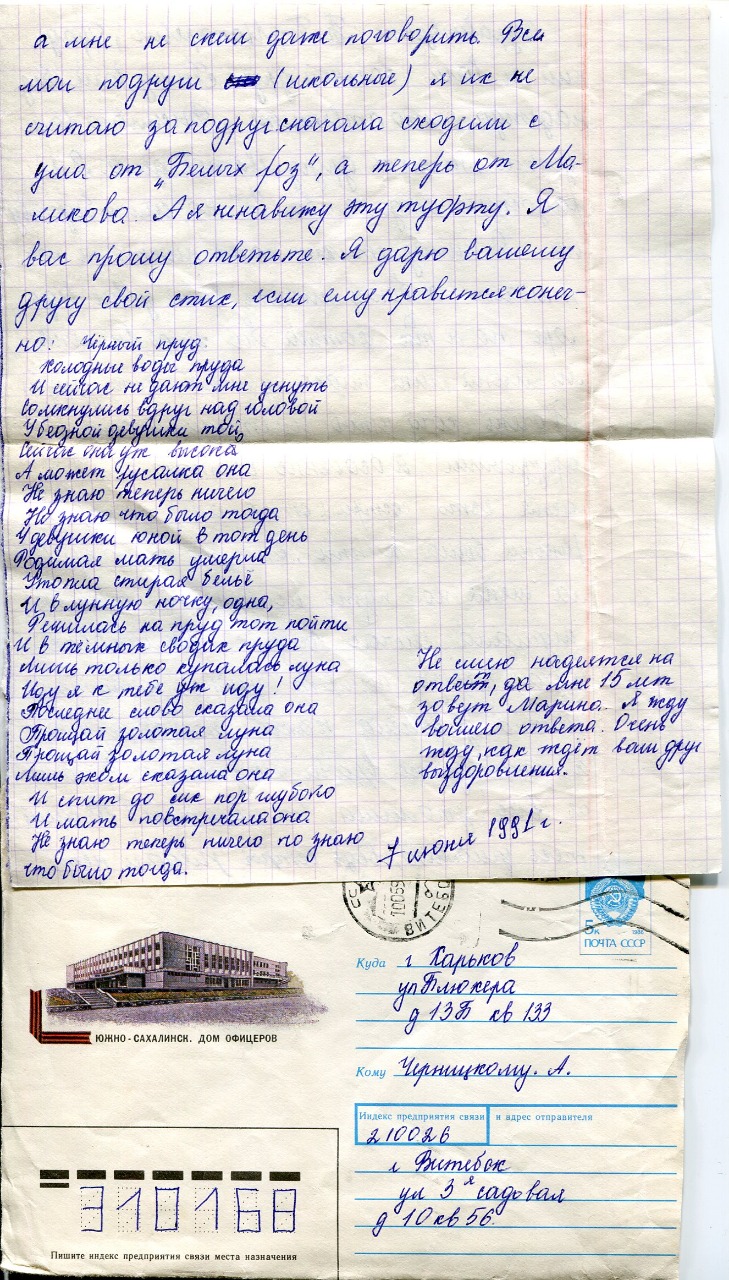 а мне не с кем даже поговорить. Все
мои подруги (школьные) я их не
считаю за подруг сначала сходили с
ума от „Белых роз", а теперь от Ма-
ликова. А я ненавижу эту туфту. Я
вас прошу ответьте. Я дарю вашему
другу свой стих, если ему нравится конеч-
но: Чёрный пруд:
Холодные воды пруда
И сейчас не дают мне уснуть
Сомкнулись вдруг над головой
У бедной девушки той,
Сейчас она уж высока
А может русалка она
Не знаю теперь ничего
Не знаю что было тогда
У девушки юной в тот день
Родимая мать умерла
Утопла стирая бельё
И в лунную ночку, одна,
Решилась на пруд тот пойти
И в тёмных сводах пруда
Лишь только купалась луна
Иду я к тебе уж иду!
Последнее слово сказала она
Прощай золотая луна
Прощай золотая луна
Лишь эхом сказала она
И спит до сих пор глубоко
И мать повстречала она
Не знаю теперь ничего не знаю
что было тогда.
Не смею надеятся на
ответ, да мне 15 лет
зовут Марина. Я жду
вашего ответа. Очень
жду, как ждёт ваш друг
выздоровления.
7 июня 1991 г.
ВИТЕБС
5к
1986
ПОЧТА СССР
ЮЖНО-САХАЛИНСК. ДОМ ОФИЦЕРОВ
Куда г Харьков
ул Блюхера
д 13Б кв 133
Кому Черницкому. А.
Индекс предприятия связи и адрес отправителя
210026
г Витебск
ул 3я садовая
д 10 кв 56.
310168
Пишите индекс предприятия связи места назначения